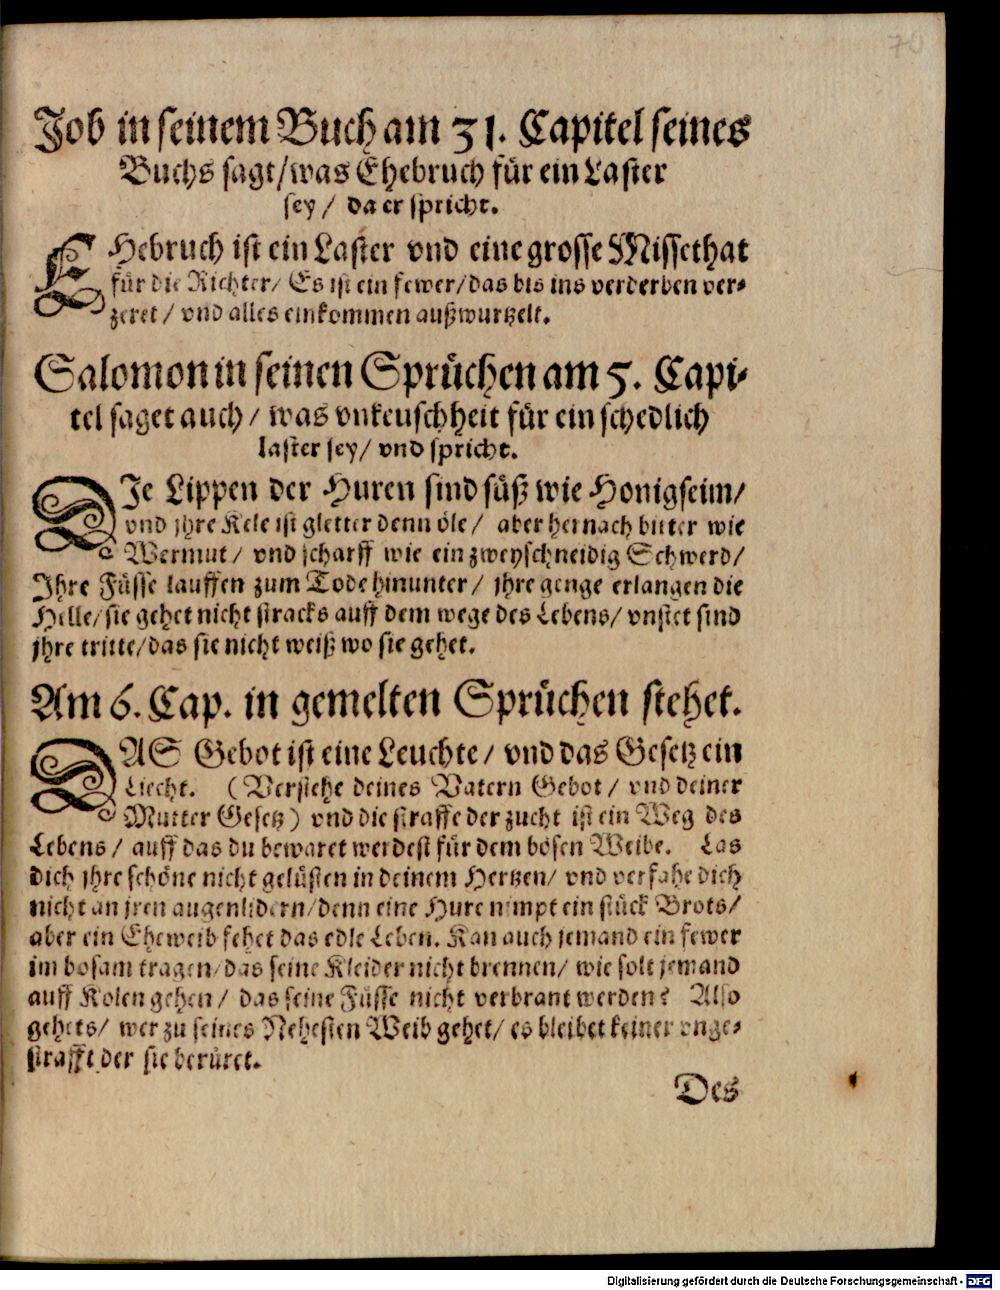 70
Job in seinem Buch am 31. Capitel seines
Buchs sagt/ was Ehebruch für ein Laster
sey/ da er spricht.
EHebruch ist ein Laster vnd eine grosse Missethat
für die Richter/ Es ist ein fewer/ das bis ins verderben ver-
zeret/ vnd alles einkommen außwurtzelt.
Salomon in seinen Sprüchen am 5. Capi-
tel saget auch/ was vnkeuschheit für ein schedlich
laster sey/ vnd spricht.
DIe Lippen der Huren sind süß wie Honigseim/
vnd jhre Kele ist gletter denn öle/ aber hernach bitter wie
Wermut/ vnd scharff wie ein zweyschneidig Schwerd/
Jhre Füsse lauffen zum Tode hinunter/ jhre genge erlangen die
Helle/ sie gehet nicht stracks auff dem wege des Lebens/ vnstet sind
jhre tritte/ das sie nicht weiß wo sie gehet.
Am 6. Cap. in gemelten Sprüchen stehet.
DAS Gebot ist eine Leuchte/ vnd das Gesetz ein
Liecht. (Verstehe deines Vatern Gebot/ vnd deiner
Mutter Gesetz) vnd die straffe der zucht ist ein Weg des
Lebens/ auff das du bewaret werdest für dem bösen Weibe. Las
dich jhre schöne nicht gelüsten in deinem Hertzen/ vnd verfahe dich
nicht an jren augenlidern/ denn eine Hure nimpt ein stück Brots/
aber ein Eheweib fehet das edle Leben. Kan auch jemand ein fewer
im bosam tragen/ das seine Kleider nicht brennen/ wie solt jemand
auff Kolen gehen/ das seine Füsse nicht verbrant werden? Also
gehets/ wer zu seines Nehesten Weib gehet/ es bleibet keiner vnge-
strafft der sie berüret.
Des
Digitalisierung gefördert durch die Deutsche Forschungsgemeinschaft - DFG